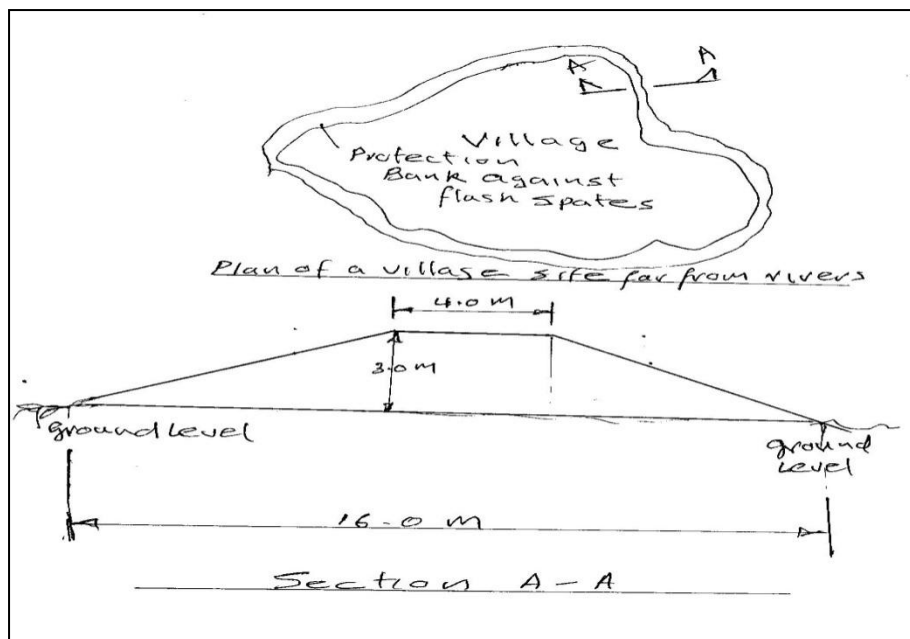 A A
Village
Protection
Bank against
flash spates
Plan of a village site far from rivers
4.0 M
3.0 M
ground Level
ground
Level
16.0 M
Section A-A